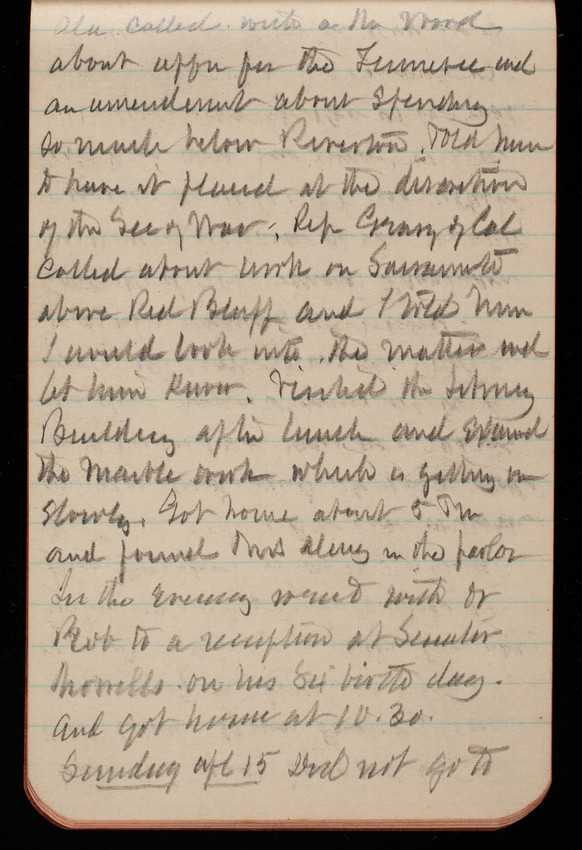 Ala called with a Mr Wood
about appn for the Tennessee and
an amendment about spending
so much below Riverton. Told him
to have it placed at the discretion
of the Sec of War. Rep Geary of Cal
called about work on Sacramento
above Red Bluff and I told him
I would look into the matter and
let him know. Visited the Library
Building after lunch and examd
the marble work which is getting on
slowly. Got home about 5 Pm
and found in the parlor
In the evening went with Dr
Bob to a reception at Senator
Morrills on his birth day.
And got home at 10.30.
Sunday apl 15 Did not go to